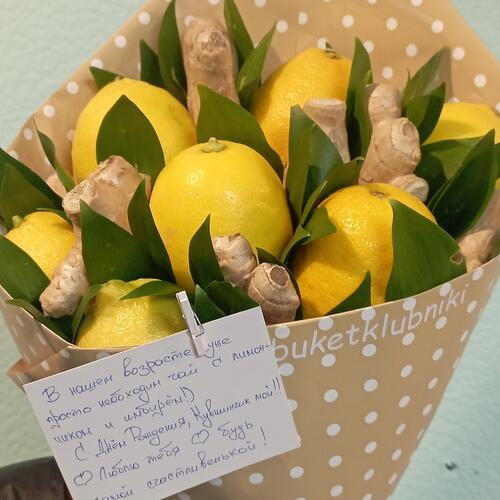 В нашем возрасте уже
просто необходим чай с лимон-
чиком и имбирём!)
С Днём Рождения, Кувшинчик мой!!
♡ Люблю тебя ♡ будь
самой счастливенькой!
buketklubniki